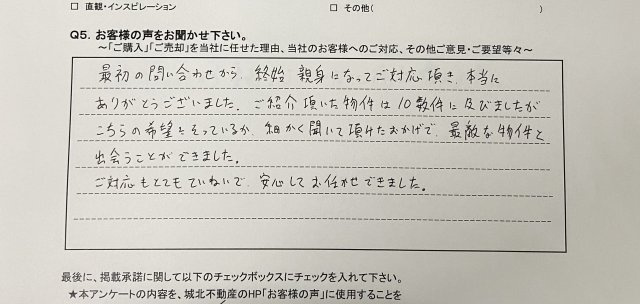 □ 直観・インスピレーション　□ その他(　)
Q5. お客様の声をお聞かせ下さい。
～「ご購入」「ご売却」を当社に任せた理由、当社のお客様へのご対応、その他ご意見・ご要望等々～
最初の問い合わせから、終始 親身になってご対応頂き、本当に
ありがとうございました。ご紹介頂いた物件は10数件に及びましたが
こちらの希望とそっているか、細かく聞いて頂けたおかげで、最敵な物件と
出会うことができました。
ご対応もとてもていねいで、安心してお任せできました。
最後に、掲載承諾に関して以下のチェックボックスにチェックを入れて下さい。
★本アンケートの内容を、城北不動産のHP「お客様の声」に使用することを